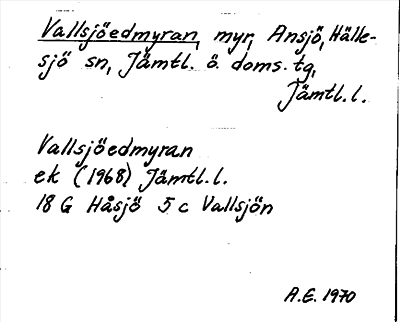 Vallsjöedmyran, myr, Ansjö, Hälle-
sjö sn, Jämtl. ö. doms. tg,
Jämtl.l.
Vallsjöedmyran
ek (1968) Jämtl.l.
18 G Håsjö 5 c Vallsjön
A.E. 1970